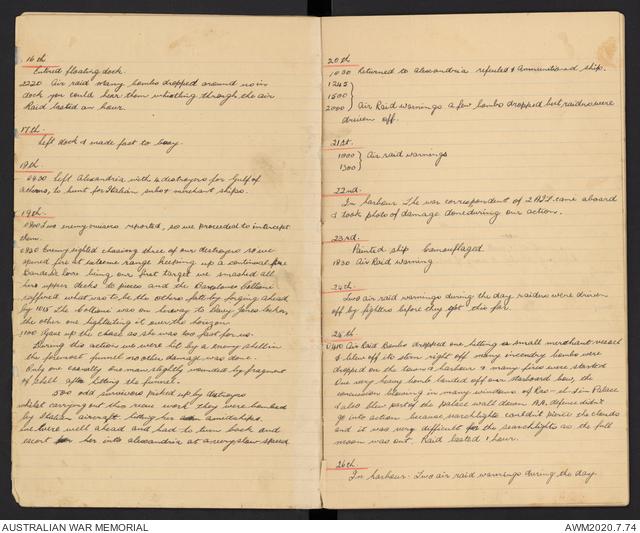 16th
Entered floating dock.
2220 Air raid many bombs dropped around us in
dock you could hear them whistling through the air
Raid lasted an hour.
17th.
Left dock & made fast to buoy.
18th.
0430 left Alexandria with 4 destroyers for Gulf of
Athens, to hunt for Italian subs & merchant ships.
19th.
0800 Two enemy cruisers reported, so we proceeded to intercept
them.
0830 Enemy sighted chasing three of our destroyers so we
opened fire at extreme range keeping up a continual fire
Bande Nere being our first target we smashed all
her upper decks to pieces and the Bartolomeo Colleone
suffered what was to be the others fate by forging ahead
by 1015 the Colleone was on her way to Davy Jones locker,
the other one hightailing it over the horizon
1100 Gave up the chase as she was too fast for us.
During this action we were hit by a enemy shell in
the foremost funnel no other damage was done.
Only one casualty one man slightly wounded by fragment
of shell after hitting the funnel.
500 odd survivors picked up by destroyers
whilst carrying out this rescue work they were bombed
by Italian aircraft hitting the amidships,
we were well ahead and had to turn back and
escort her into alexandria at a very slow speed
20th
1030 Returned to alexandria refueled & Ammunitioned ship.
1245
1500
2000 } Air Raid warnings a few bombs dropped but raiders were
driven off.
21st.
1000 } Air raid warnings
1300
22nd.
In harbour. The war correspondent of 2 A.I.F. came aboard
& took photo of damage done during our actions.
23rd.
Painted ship Camouflaged.
1830 Air Raid warning
24th.
Two air raid warnings during the day raiders were driven
off by fighters before they got this far.
25th.
Air Raid Bombs dropped one hitting a small merchant vessel
& blew off its stern right off many incendiary bombs were
dropped on the town & harbour & many fires were started
One very heavy bomb landed off our starboard bow, the
concussion blowing in many windows of Ras-el-tin Palace
& also blew part of the palace wall down. A.A. defence didn't
go into action because searchlights couldn't pierce the clouds
and it was very difficult for the searchlights as the full
moon was out. Raid lasted 1 hour.
26th.
In harbour. Two air raid warnings during the day.
AUSTRALIAN WAR MEMORIAL
AWM2020.7.74